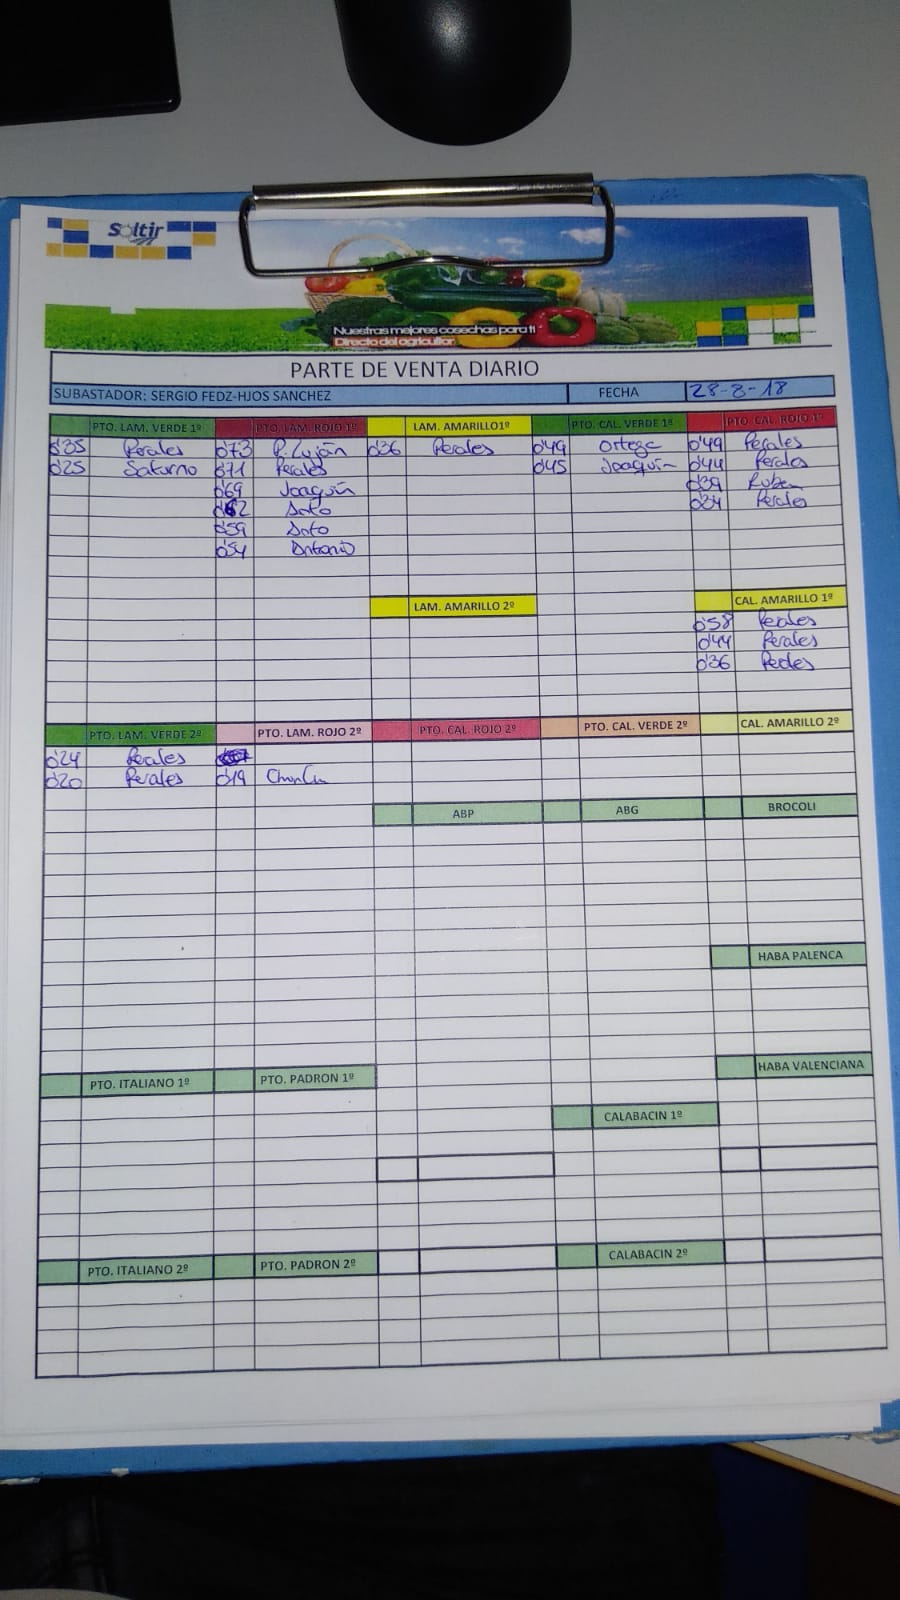 Soltir
Nuestras mejores cosechas para ti
Directo del agricultor
PARTE DE VENTA DIARIO
SUBASTADOR: SERGIO FEDZ-HJOS SANCHEZ FECHA 28-8-18
PTO. LAM. VERDE 1º PTO. LAM. ROJO 1º LAM. AMARILLO1º PTO. CAL. VERDE 1º PTO. CAL. ROJO 1º
0'35 Perales 0'73 P. Luján 0'36 Perales 0'49 Ortega 0'49 Perales
0'25 Saturno 0'71 Perales 0'45 Joaquín 0'44 Perales
0'69 Joaquín 0'39 Ruben
0'62 Soto 0'34 Perales
0'59 Soto
0'54 Antonio
LAM. AMARILLO 2º CAL. AMARILLO 1º
0'58 Perales
0'44 Perales
0'36 Perales
PTO. LAM. VERDE 2º PTO. LAM. ROJO 2º PTO. CAL. ROJO 2º PTO. CAL. VERDE 2º CAL. AMARILLO 2º
0'24 Perales
0'20 Perales 0'19
ABP ABG BROCOLI
HABA PALENCA
HABA VALENCIANA
PTO. ITALIANO 1º PTO. PADRON 1º
CALABACIN 1º
PTO. ITALIANO 2º PTO. PADRON 2º CALABACIN 2º